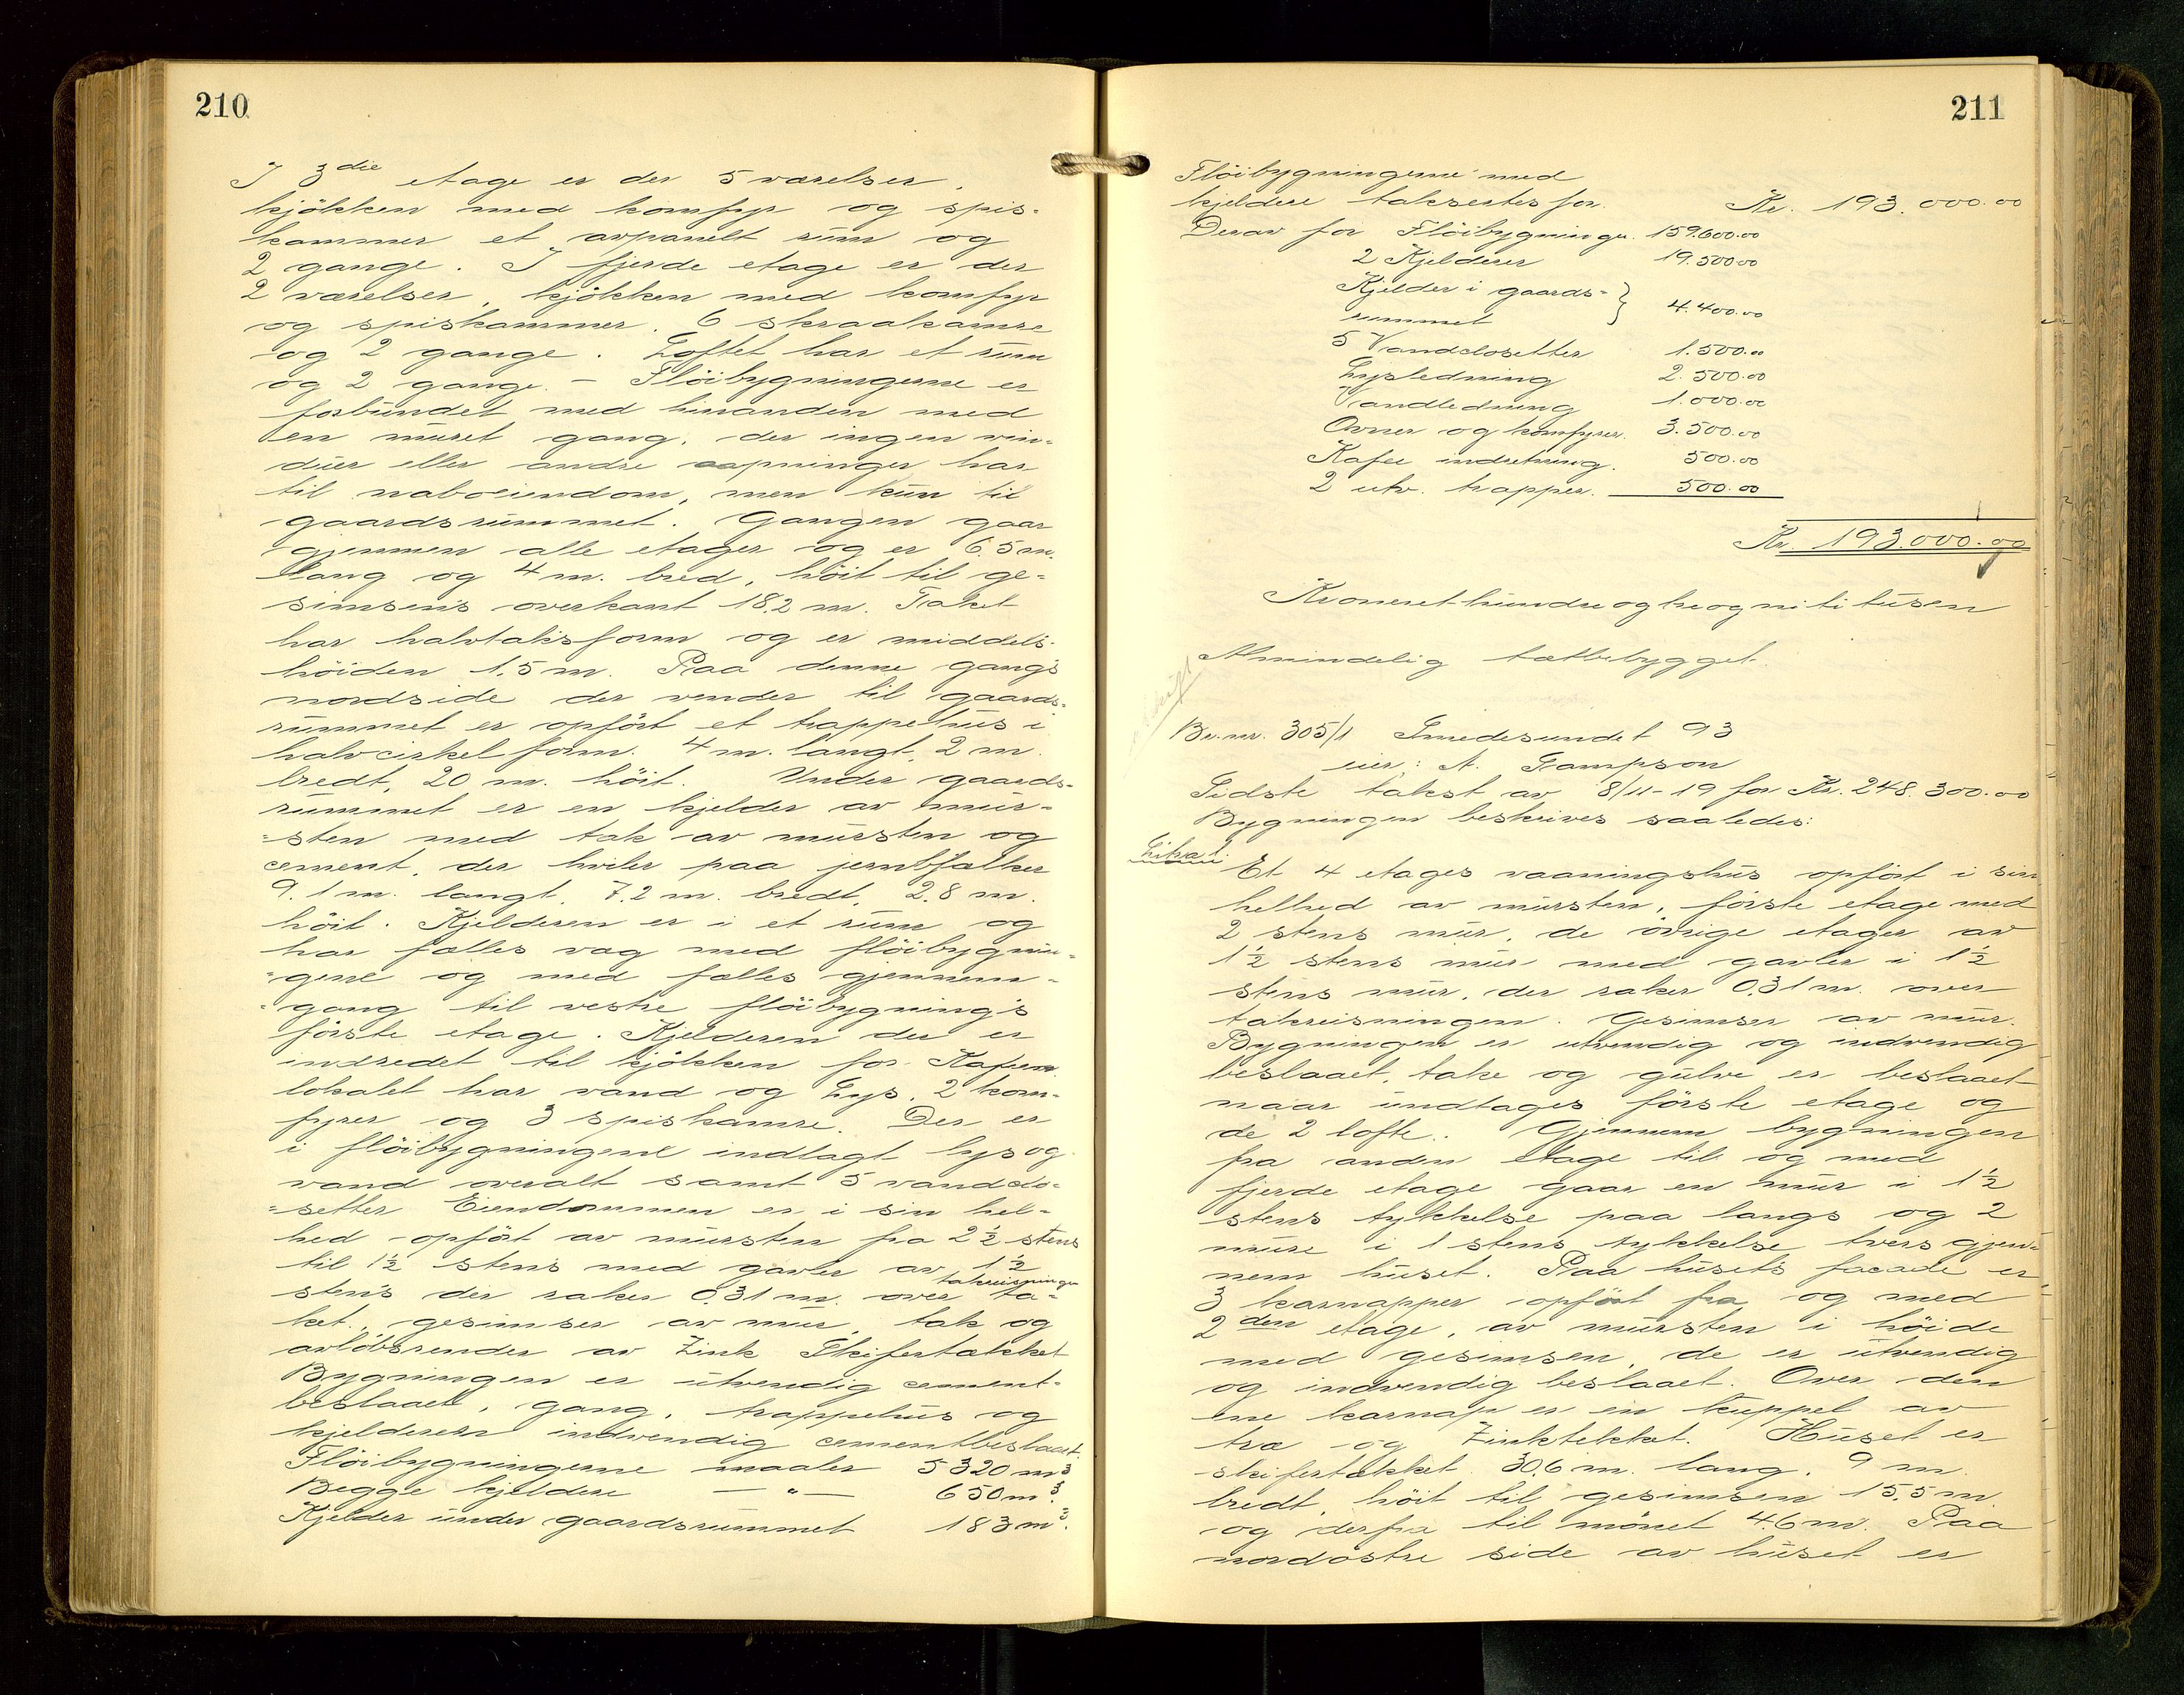 210
I 3die etage er der 5 værelser,
kjökken med komfyr og spis-
kammer et avpanelt rum og
2 gange. I fjerde etage er der
2 værelser, kjökken med komfyr
og spiskammer. 6 skraakamre
og 2 gange. Loftet har et rum
og 2 gange. - Flöibygningerne er
forbundet med hinanden med
en muret gang, der ingen vin-
duer eller andre aapninger har
til naboeiendom, men kun til
gaardsrummet. Gangen gaar
gjennem alle etager og er 6.5 m.
lang og 4 m. bred, höit til ge-
simsens overkant 18.2 m. Taket
har halvtaksform og er middels-
höiden 1.5 m. Paa denne gangs
nordside der vender til gaards-
rummet er opfört et trappehus i
halvcirkelform. 4 m. langt, 2 m.
bredt, 20 m. höit. Under gaards-
rummet er en kjelder av mur-
=sten med tak av mursten og
cement, der hviler paa jernbjælker
9.1 m. langt, 7.2 m. bredt, 2.8 m.
höit. Kjelderen er i et rum og
har fælles væg med flöibygnin-
=gene og med fælles gjennem-
=gang til vestre flöibygning's
förste etage. Kjelderen der er
indredet til kjökken for Kafeen
lokalet har vand og Lys, 2 kom-
fyrer og 3 spiskamre. Der er
i flöibygningene indlagt lys og
vand overalt samt 5 vandclo-
=setter Eiendommen er i sin hel-
hed opfört av mursten fra 2½ stens
til 1½ stens med gavler av 1½
takreisningen
stens der raker 0.31 m. over ta-
ket, gesimser av mur, tak og
avlöbsrender av Zink Skifertækket
Bygningen er utvendig cement-
beslaaet, gang, trappehus og
kjelderen indvendig cementbeslaaet.
Flöibygningerne maaler 5320 m³
Begge kjeldere — " — 650 m³.
Kjelder under gaardsrummet 183 m³.
211
Flöibygningerne med
kjeldere takseres for. Kr. 193.000.00
Derav for Flöibygninger. 159.600.00
2 Kjelderer 19.500.00
Kjelder i gaards-
rummet } 4.400.00
5 Vandclosetter 1.500.00
Lysledning 2.500.00
Vandledning 1.000.00
Ovner og komfyrer. 3.500.00
Kafee indretning. 500.00
2 utv. trapper. 500.00
Kr. 193.000.00
Kroneret-hundreogtreognitti tusen
Almindelig tætbebygget.
Br.nr. 305/1 Smedesundet 93
eier: A. Sampson
Sidste takst av 8/11-19 for Kr. 248.300.00
Bygningen beskrives saaledes:
Et 4 etages vaaningshus opfört i sin
helhed av mursten, förste etage med
2 stens mur, de övrige etager av
1½ stens mur med gavler i 1½
stens mur, der raker 0.31 m. over
takreisningen. Gesimser av mur.
Bygningen er utvendig og indvendig
beslaaet, take og gulve er beslaaet
naar undtages förste etage og
de 2 lofte. Gjennem bygningen
fra anden etage til og med
fjerde etage gaar en mur i 1½
stens tykkelse paa langs og 2
mure i 1 stens tykkelse tvers gjen-
nem huset. Paa husets facade er
3 karnapper opfört fra og med
2den etage, av mursten i höide
med gesimsen, de er utvendig
og indvendig beslaaet. Over den
ene karnap er en kuppel av
træ og Zinktækket. Huset er
skifertækket 30.6 m. lang, 9 m.
bredt, höit til gesimsen 15.5 m.
og derfra til mönet 4.6 m. Paa
nordöstre side av huset er